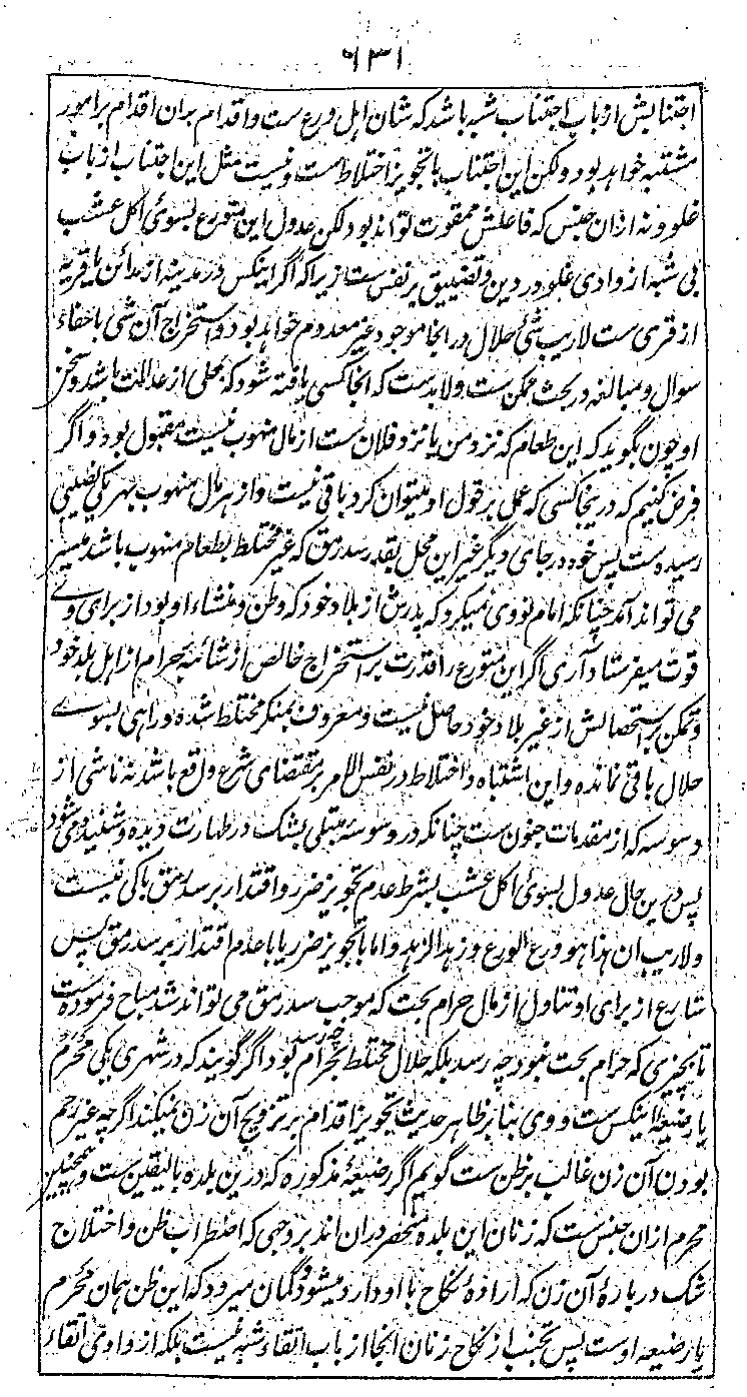 ٦٣١
اجتنابش از باب اجتناب شبه باشد که شان اهل ورع ست و اقدام بران اقدام بر امور
مشتبه خواهد بود ولکن این اجتناب با تجویز اختلاط ست و نیست مثل این اجتناب از باب
غلو و نه ازان جنس که فاعلش ممقوت تواند بود لکن عدول این متورع بسوئ اکل عشب
بی شبه از وادی غلو در دین و تضییق بر نفس ست زیرا که اگر اینکس در مدینه از مدائن یا قریه
از قری ست لاریب شئ حلال در انجا موجود غیر معدوم خواهد بود و استخراج آن شی باحفاء
سوال و مبالغه در بحث ممکن ست ولابد ست که انجا کسی یافته شود که بمحلی از عدالت باشد و سخن
او چون بگوید که این طعام که نزد من یا نزد فلان ست از مال منهوب نیست مقبول بود و اگر
فرض کنیم که دریجا کسی که عمل بر قول او میتوان کرد باقی نیست و از هر مال منهوب بهر یکی نصیبی
رسیده ست پس خود در جای دیگر غیر این محل بقدر سد رمق که غیر مختلط بطعام منهوب باشد میسر
می تواند آمد چنانکه امام نووی میکرد که پدرش از بلاد خود که وطن و منشاء او بود از برای وے
قوت میفرستاد آری اگر این متورع را قدرت بر استخراج خالص از شائبه بحرام از اهل بلد خود
و تمکن بر استحصالش از غیر بلاد خود حاصل نیست و معروف بمنکر مختلط شده و راهی بسوے
حلال باقی نمانده و این اشتباه و اختلاط در نفس الامر بر مقتضای شرع واقع باشد نه ناشی از
وسوسه که از مقدمات جنون ست چنانکه در وسوسۀ مبتلی بشک در طهارت دیده و شنیده می شود
پس درین حال عدول بسوئ اکل عشب بشرط عدم تجویز ضرر و اقتدار بر سد رمق باکی نیست
ولاریب ان هذا هو ورع الورع و زهد الزهد و اما با تجویز ضرر یا با عدم اقتدار بر سد رمق پس
شارع از برای او تناول از مال حرام بحت که موجب سد رمق می تواند شد مباح فرموده ست
تا بچیزی که حرام بحت نبود چه رسد بلکه حلال مختلط بحرام بود چه رسد اگر گویند که در شهری یکی محرم
یا رضیعۀ اینکس ست و وی بنا بر ظاهر حدیث تجویز اقدام بر تزویج آن زن نمیکند اگرچه غیر محرم
بودن آن زن غالب بر ظن ست گویم اگر رضیعۀ مذکوره که درین بلده بالیقین ست و همچنین
محرم ازان جنس ست که زنان این بلده منحصر دران اند بر وجهی که اضطراب ظن و اختلاج
شک در بارۀ آن زن که ارادۀ نکاح با او دارد میشود و گمان میرود که این ظن همان محرم
یا رضیعه اوست پس تجنب از نکاح زنان انجا از باب اتقاء شبه نیست بلکه از وادی اتقاء